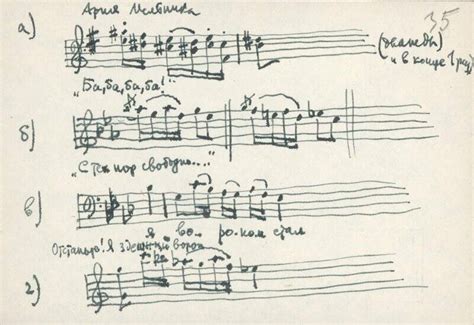 Ария Мельника
35
а)
(дважды)
и в конце 1 раз)
"Ба, ба, ба, ба!"
б)
"С тех пор свободно...."
в)
я во- ро- ном стал
Отстань! Я здешний ворон
г)